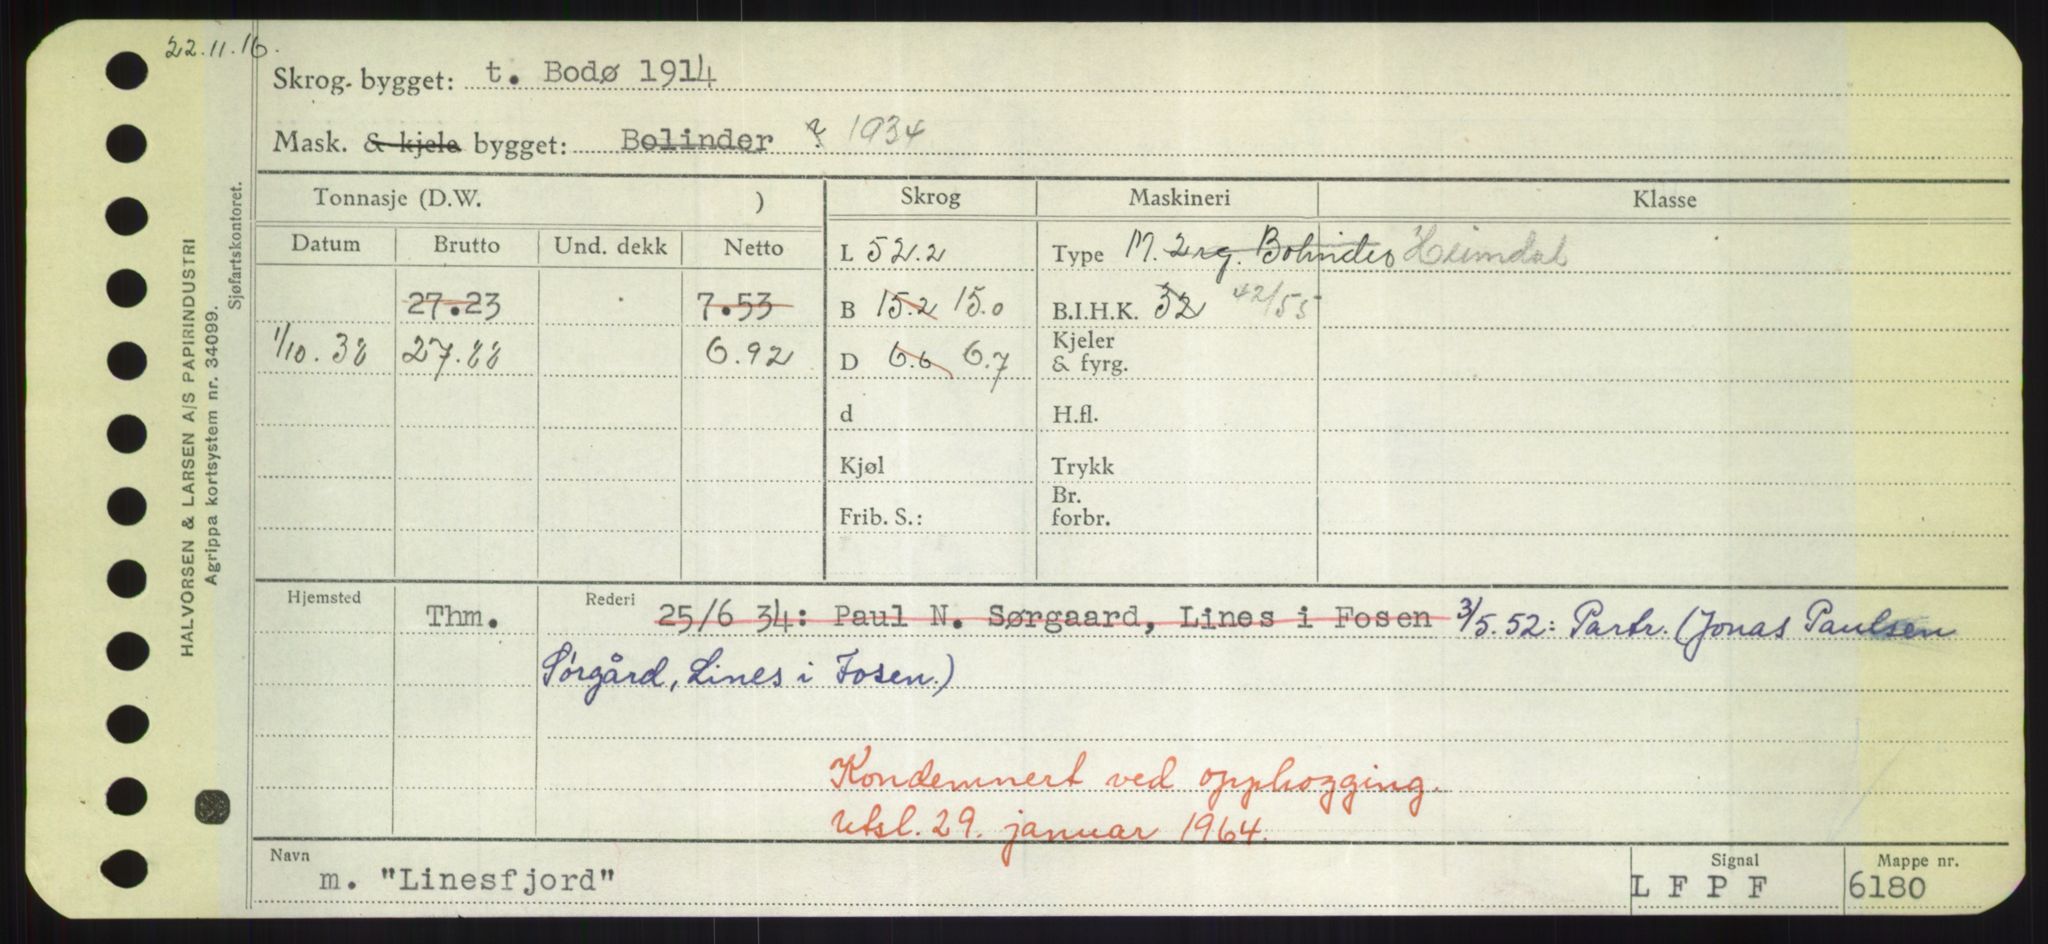 22.11.16.
Skrog. bygget: t. Bodø 1914
Mask. & kjele bygget: Bolinder 1934
Tonnasje (D.W. )
Skrog
Maskineri
Klasse
Datum Brutto Und. dekk Netto
L 52.2
Type M. 2 rg. Bolinder Heimdal
27.23 7.53
B 15.2 15.0
B.I.H.K. 32 42/55
1/10.38 27.88 6.92
D 6.6 6.7
Kjeler
& fyrg.
d
H.fl.
Kjøl
Trykk
Frib. S.:
Br.
forbr.
Hjemsted Thm.
Rederi 25/6 34: Paul N. Sørgaard, Lines i Fosen 3/5.52: Partr. (Jonas Paulsen
Sørgård, Lines i Fosen.)
Kondemnert ved opphogging.
Utsl. 29. januar 1964.
Navn
m. "Linesfjord"
Signal
L F P F
Mappe nr.
6180
HALVORSEN & LARSEN A/S PAPIRINDUSTRI
Agrippa kortsystem nr. 34099.
Sjøfartskontoret.